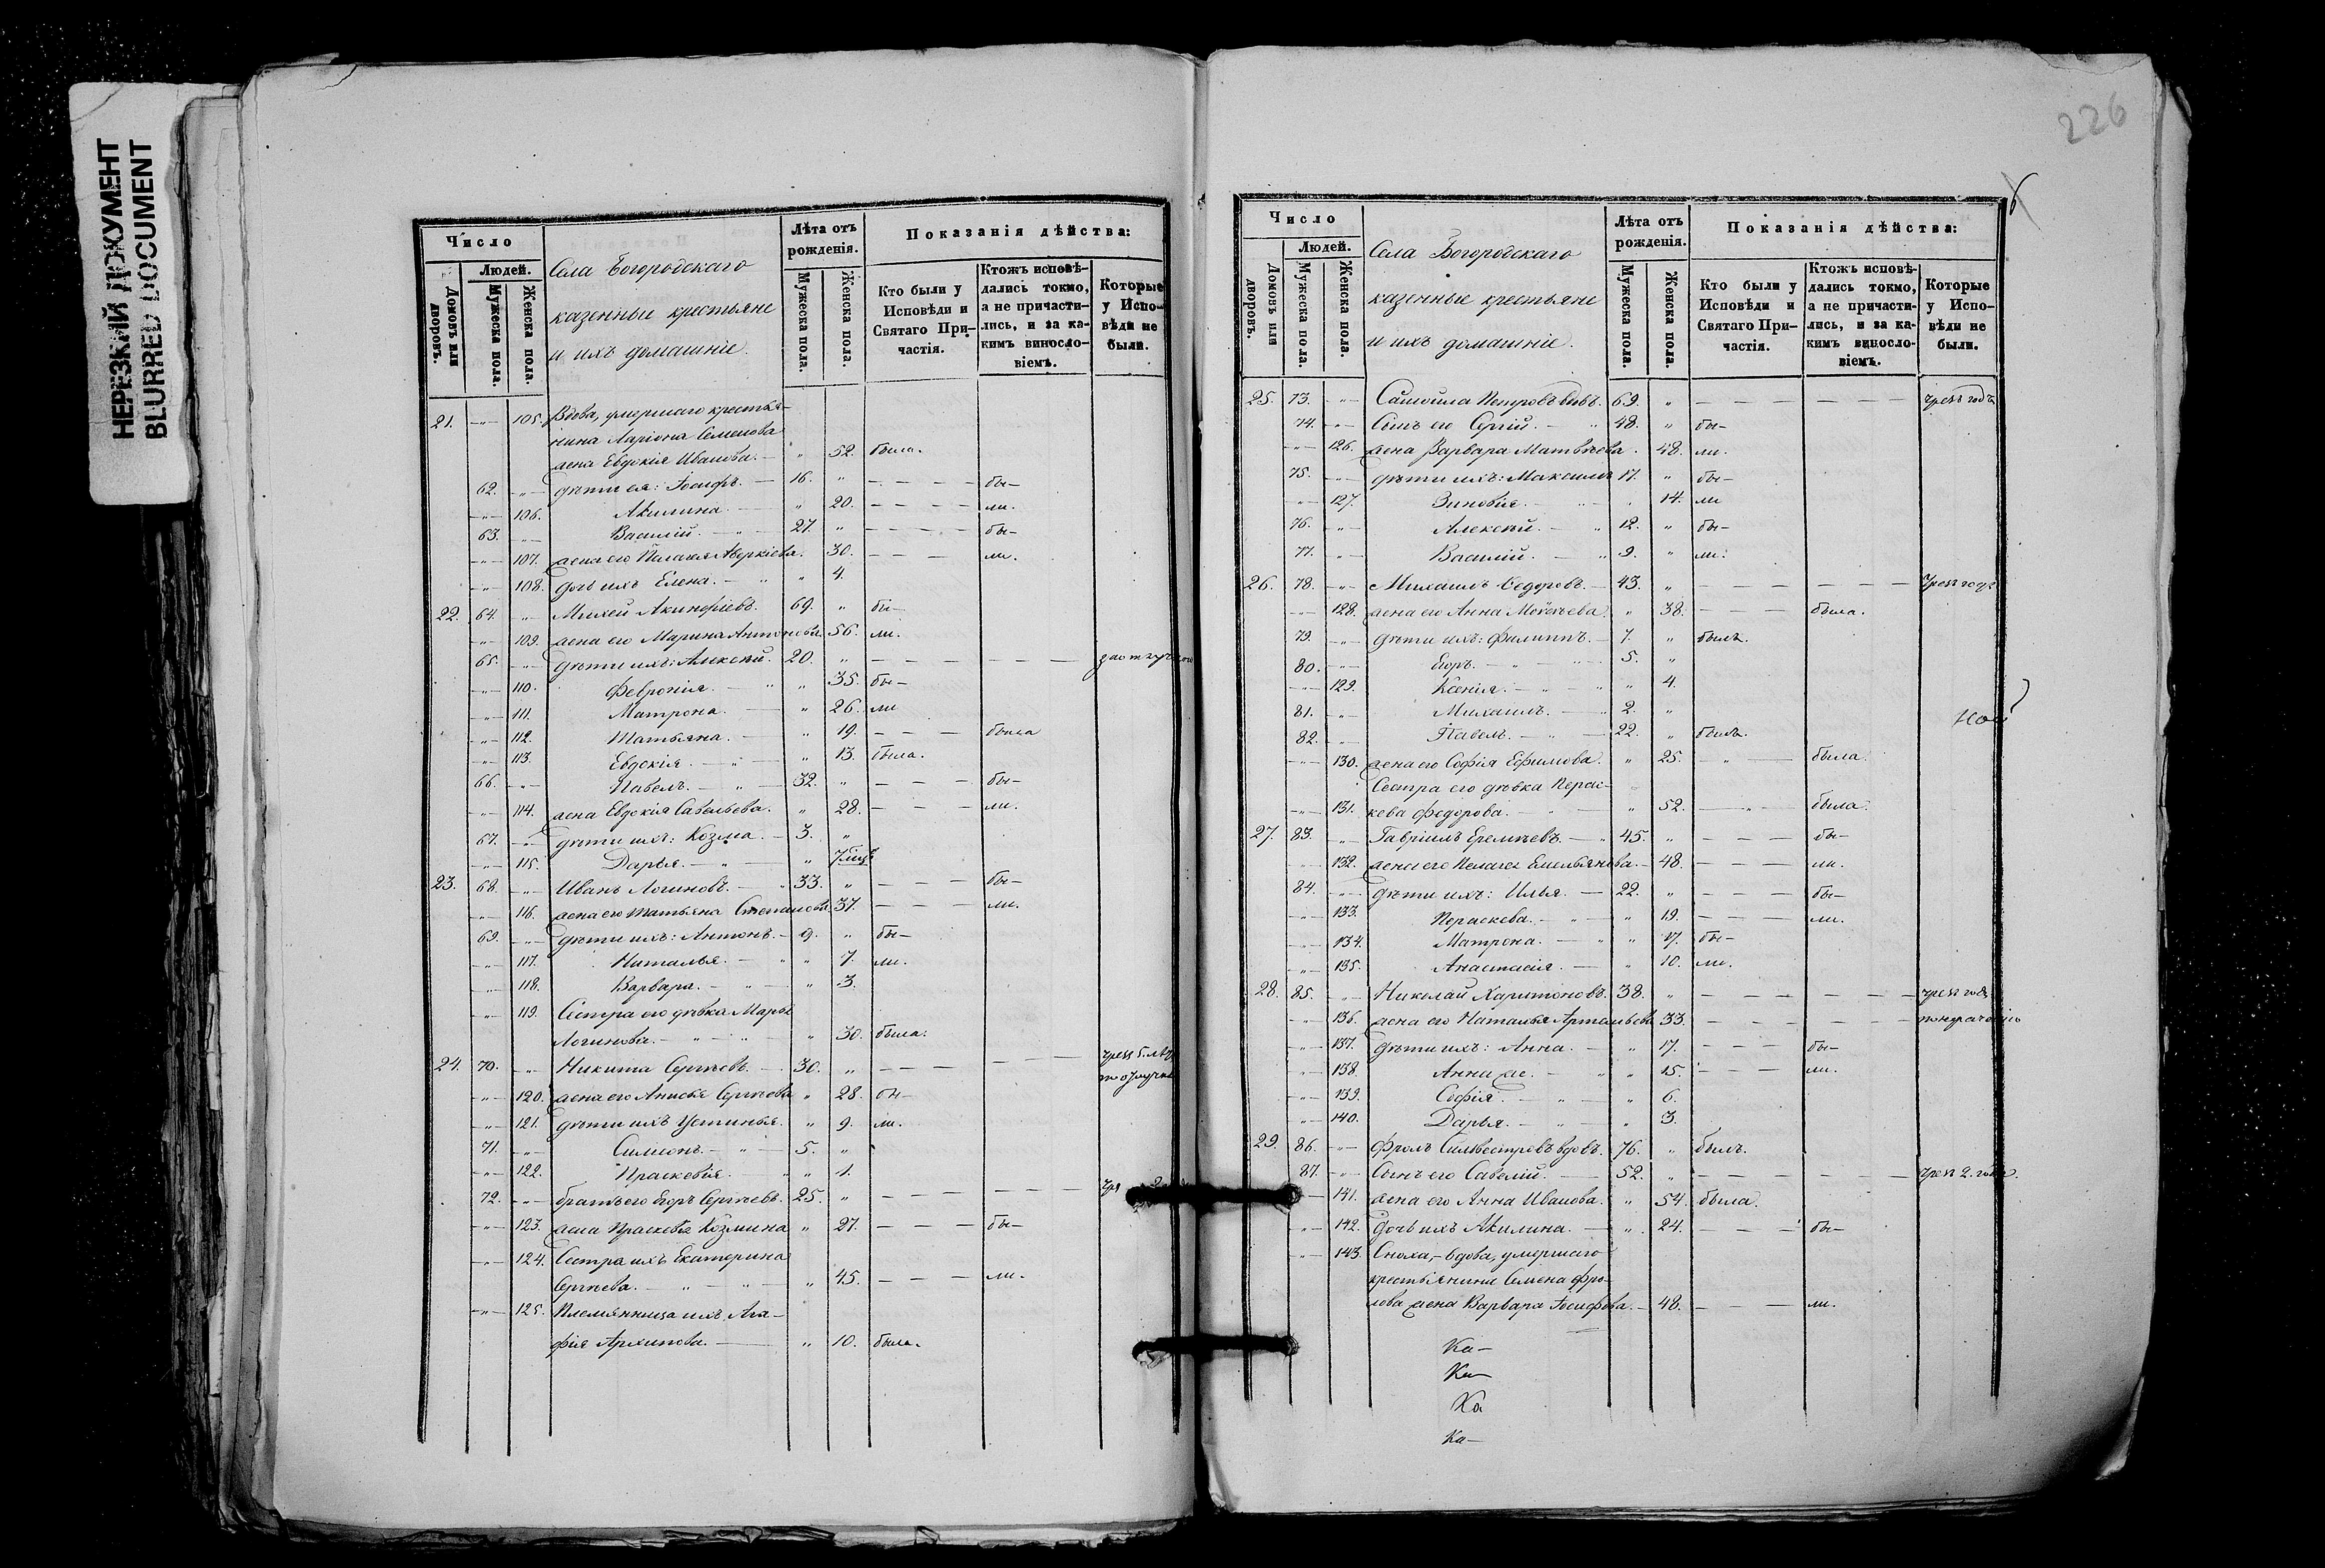 НЕРЕЗКИЙ ДОКУМЕНТ
BLURRED DOCUMENT
Число
Людей.
Домовъ или дворовъ.
Мужеска пола.
Женска пола.
Села Богородскаго
казенные крестьяне
и ихъ домашніе.
Лѣта отъ рожденія.
Мужеска пола.
Женска пола.
Показанія дѣйства:
Кто были у Исповѣди и Святаго При-частія.
Ктожъ исповѣ-дались токмо, а не причасти-лись, и за ка-кимъ винословіемъ.
Которые у Испо-вѣди не были.
21. -"- 105. Вдова, умершаго крестья-
нина Ларіона Семенова
жена Евдокія Иванова. - " 52. была.
62. -"- дѣти ея: Іосифъ. - 16. " - - - - бы-
-"- 106. Акилина. - " 20. - - - - ли.
63. -"- Василій. - " 27. " - - - - бы-
-"- 107. жена его Пелагея Аверкіева. 30. - - - ли.
-"- 108. дочь ихъ Елена. - " " 4.
22. 64. -"- Михей Акинфіевъ. 69. " бы-
-"- 109. жена его Марина Антонова. 56. ли.
65. -"- дѣти ихъ: Алексѣй. 20. " - - - - - -
-"- 110. Февронія. - " " 35. бы-
-"- 111. Матрона. - " 26. ли
-"- 112. Татьяна. - " 19. - - - была
-"- 113. Евдокія. - " - " 13. была.
66. -"- Павелъ. - " - 32. " - - - бы-
-"- 114. жена Евдокія Савельева. " 28. - - - ли.
67. -"- дѣти ихъ: Козма. - 3. "
-"- 115. Дарья. - " - " 7 мцъ
23. 68. -"- Иванъ Логиновъ. - " 33. " - - - бы-
-"- 116. жена его Татьяна Степанова. 37. - - - ли.
69. -"- дѣти ихъ: Антонъ. - 9. " бы-
-"- 117. Наталья. - " " 7. ли.
-"- 118. Варвара. - " - " 3.
-"- 119. Сестра его дѣвка Марья
Логинова. - " - " - " 30. была.
24. 70. -"- Никита Сергѣевъ. - 30. " - - - - - - чрезъ 5. лѣтъ
-"- 120. жена его Анисья Сергѣева " 28. бы-
-"- 121. дѣти ихъ Устинья. " 9. ли.
71. -"- Симіонъ. - " - 5. "
-"- 122. Прасковія. - " " 1.
72. -"- братъ его Егоръ Сергѣевъ. 25. " - - - - - -
-"- 123. жена Прасковья Козмина " 27. - - - бы-
-"- 124. Сестра ихъ Екатерина
Сергѣева. - " - " - " 45. - - - ли.
-"- 125. Племянница ихъ Ага-
фія Архипова. - " 10. была.
226
6
Число
Людей.
Домовъ или дворовъ.
Мужеска пола.
Женска пола.
Села Богородскаго
казенные крестьяне
и ихъ домашніе.
Лѣта отъ рожденія.
Мужеска пола.
Женска пола.
Показанія дѣйства:
Кто были у Исповѣди и Святаго При-частія.
Ктожъ исповѣ-дались токмо, а не причасти-лись, и за ка-кимъ винословіемъ.
Которые у Испо-вѣди не были.
25. 73. -"- Самойла Петровъ вдовъ. 69. " - - - - - - чрезъ годъ
74. -"- Сынъ его Сергій. - " 48. " бы-
-"- 126. жена Варвара Матвѣева. 48. ли.
75. -"- дѣти ихъ: Максимъ 17. " бы-
-"- 127. Зиновія. - " - " 14. ли
76. -"- Алексѣй. - " 12. " бы-
77. -"- Василій. - " 9. " ли.
26. 78. -"- Михаилъ Ѳедоровъ. - 43. " - - - - - - чрезъ годъ
-"- 128. жена его Анна Моѵсѣева. " 38. - - - была.
79. -"- дѣти ихъ: Филиппъ. - 7. " былъ.
80. -"- Егоръ. - " " - 5. "
-"- 129. Ксенія. - " - " " 4.
81. -"- Михаилъ. - " 2. "
82. -"- Павелъ. - " - 22. " былъ.
-"- 130. жена его Софія Ефимова. " 25. - " - была.
Сестра его дѣвка Парас-
-"- 131. кева Федорова. - " 52. - " - была.
27. 83. -"- Гавріилъ Еремѣевъ. - " 45. " - - - бы-
-"- 132. жена его Пелагея Емельянова. - 48. - - - ли.
84. -"- дѣти ихъ: Илья. - 22. " - - - бы-
-"- 133. Параскева. - " - " 19. - - - ли.
-"- 134. Матрона. - " " 17. бы-
-"- 135. Анастасія. - " 10. ли.
28. 85. -"- Николай Харитоновъ. 38. " - - - - - - чрезъ годъ
-"- 136. жена его Наталья Артемьева 33. - - - - - -
-"- 137. дѣти ихъ: Анна. - " 17. - - - бы-
-"- 138. Анна же. - " " 15. - - - ли.
-"- 139. Софія. - " - " 6.
-"- 140. Дарья. - " - " 3.
29. 86. -"- Фролъ Сильвестровъ вдовъ. 76. " былъ.
87. -"- Сынъ его Савелій. - 52. " - - - - - - чрезъ 2. года.
-"- 141. жена его Анна Иванова. " 54. была.
-"- 142. дочь ихъ Акилина. - " 24. - - - бы-
-"- 143. Сноха, - вдова, умершаго
крестьянина Семена Фро-
лова жена Варвара Іосифова. - 48. - - - ли.
Ка-
Ка-
Ка
Ка-